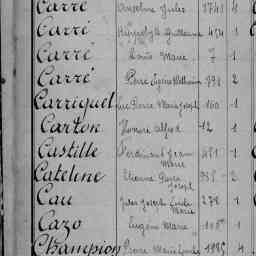 Carré Anselme Jules 1741 4
Carré Hippolyte Guillaume 454 1
Carré Louis Marie 7 1
Carré Pierre Eugène 898 2
Carriguel Pierre Marie Joseph 160 1
Carton Honoré Alfred 12 1
Castille Ferdinand Jean Marie 481 1
Cateline Etienne Pierre Joseph 2
Cau Jules Joseph Emile Marie 278 1
Cazo Eugène Marie 1
Champion Pierre Marie 1985 4